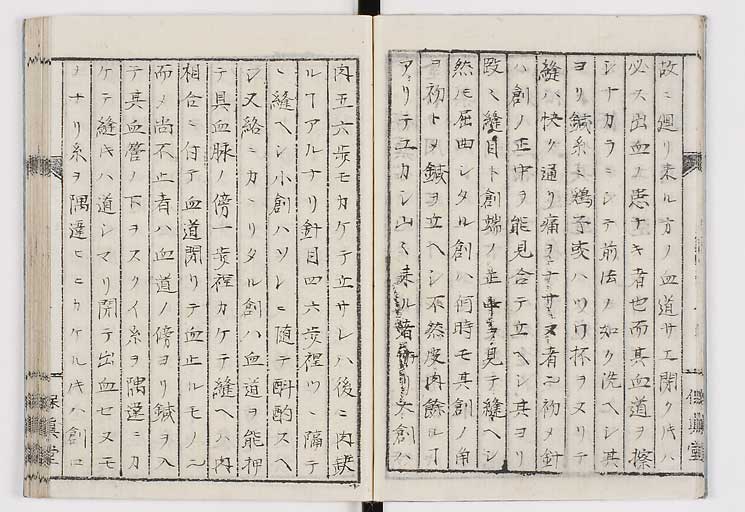 故ニ廻リ来ル方ノ血道サエ閉クキハ
必ス出血ノ患ナキ者也而其血道ヲ擦
シナカラニシテ前法ノ如ク洗ヘシ其
ヨリ鍼糸ニ鶏子 ハツ 杯ヲヌリテ
縫ハ快ク通リ痛ヲナサヌ者ニ初メ針
ハ創ノ正中ヲ能見合テ立ヘシ其ヨリ
段々縫目ト創端ノ正中ヲ見テ縫ヘシ
然 屈曲シタル創ハ何時モ其創ノ角
ヲ初トメ鍼ヲ立ヘシ不然皮肉餘ル
アリテ カシ山ミ来ル 大創ハ
保眞堂
肉五六歩モカケテ立サレハ後ニ肉
ルヿアルナリ針目四六歩裡ツヽ隔テ
縫ヘシ小創ハソレニ随テ斟酌スヘ
シ又絡ニカヽリタル創ハ血道ヲ能押
テ具血脉ノ傍一歩裡カケテ縫ヘハ内
相合ニ付テ血道閉リテ血止ルモノ
而メ尚不止者ハ血道ノ傍ヨリ鍼ヲ入
テ其血管ノ下ヲスクイ糸ヲ隅違ニカ
ケテ縫キハ道シマリ閉テ出血セヌモ
ノナリ糸ヲ隅違ヒニカケルキハ創ニ
保眞堂